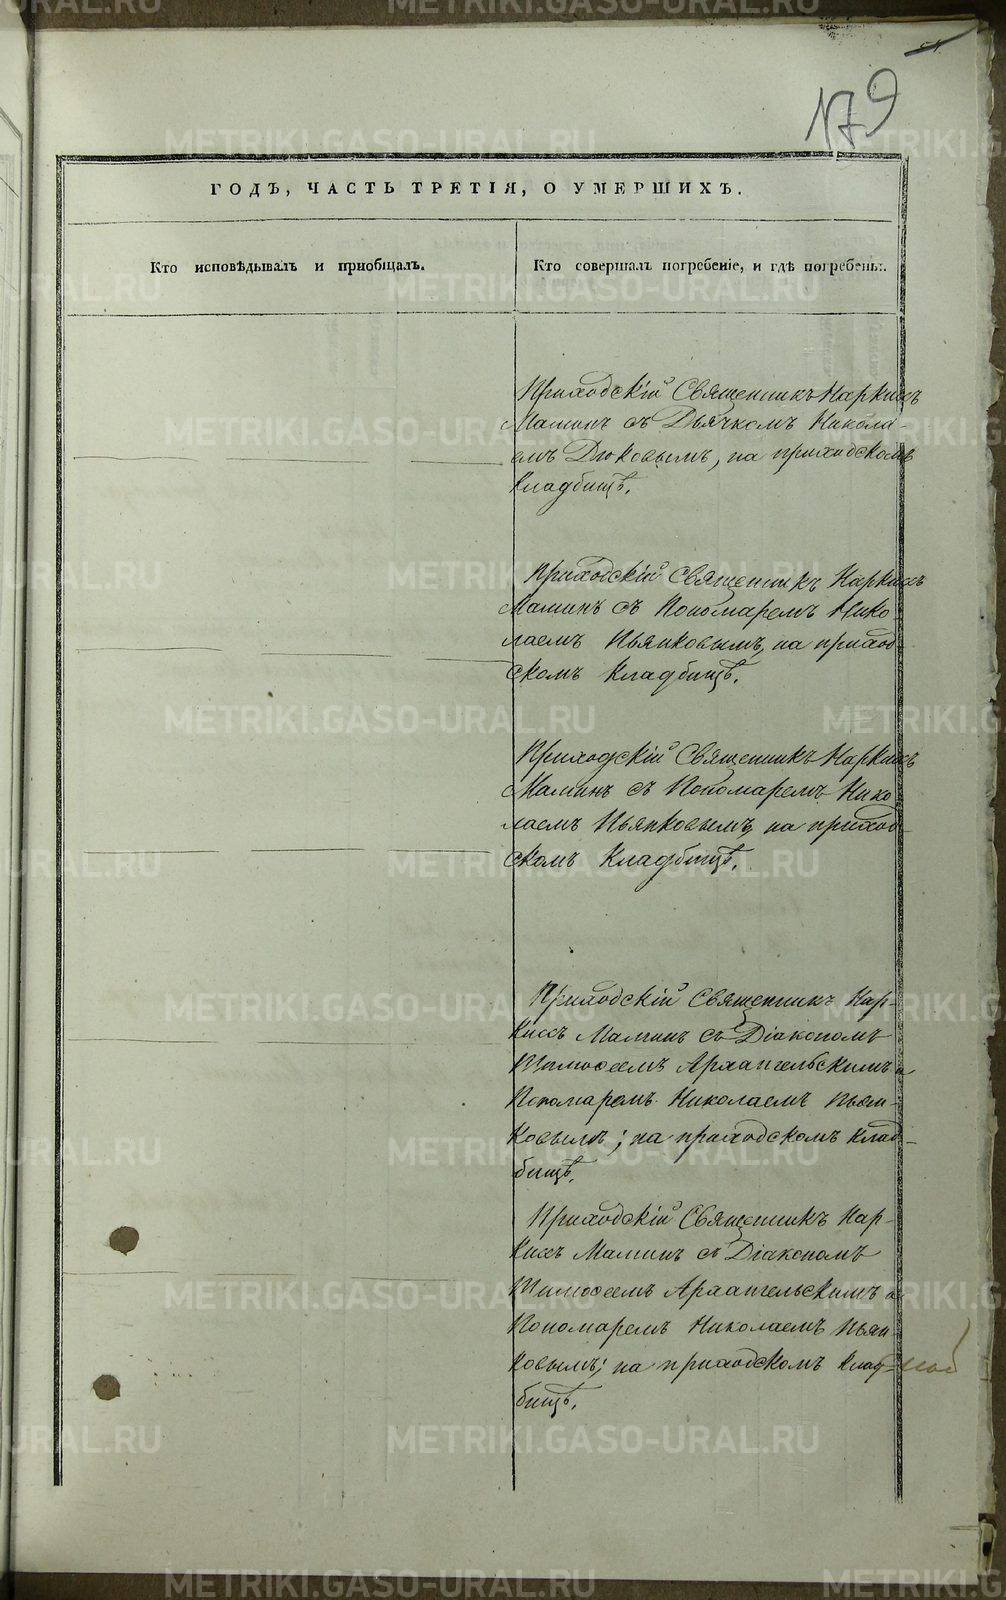 179
ГОДЪ, ЧАСТЬ ТРЕТІЯ, О УМЕРШИХЪ.
Кто исповѣдывалъ и пріобщалъ.
Кто совершалъ погребеніе, и гдѣ погребены.
Приходскій Священникъ Наркисъ
Маминъ съ Дьячкомъ Никола-
емъ Дюковымъ, на приходскомъ
кладбищѣ.
Приходскій Священникъ Наркисъ
Маминъ съ Пономаремъ Нико-
лаемъ Пьянковымъ, на приход-
скомъ кладбищѣ.
Приходскій Священникъ Наркисъ
Маминъ съ Пономаремъ Нико-
лаемъ Пьянковымъ, на приход-
скомъ кладбищѣ.
Приходскій Священникъ Нар-
кисъ Маминъ съ Діакономъ
Тимофеемъ Архангельскимъ и
Пономаремъ Николаемъ Пьян-
ковымъ; на приходскомъ клад-
бищѣ.
Приходскій Священникъ Нар-
кисъ Маминъ съ Діакономъ
Тимофеемъ Архангельскимъ и
Пономаремъ Николаемъ Пьян-
ковымъ; на приходскомъ клад-
бищѣ.
METRIKI.GASO-URAL.RU